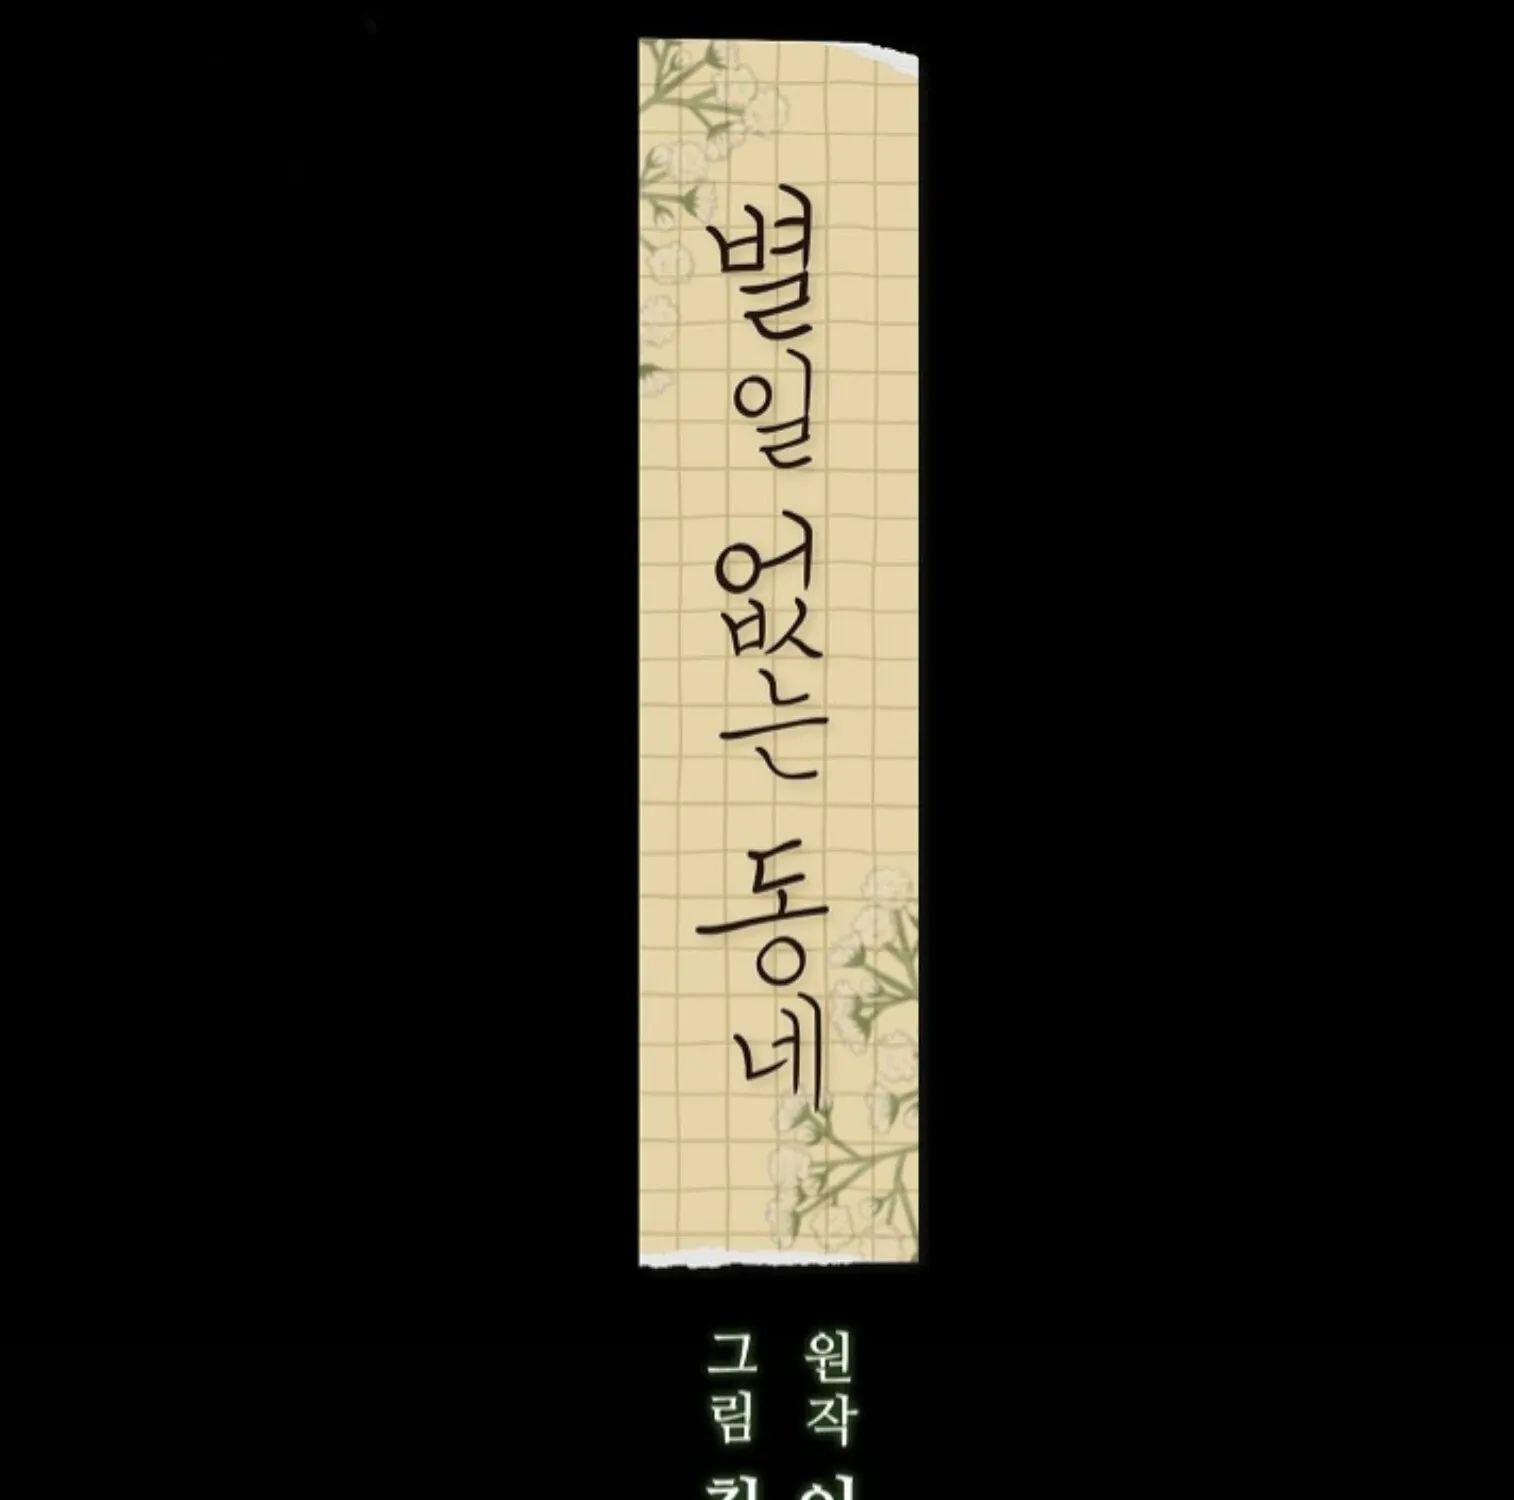 별일 없는 동네
원작
그림